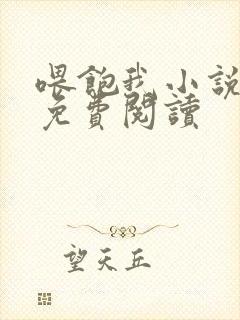 喂飽我小說
免費閱讀
望天丘